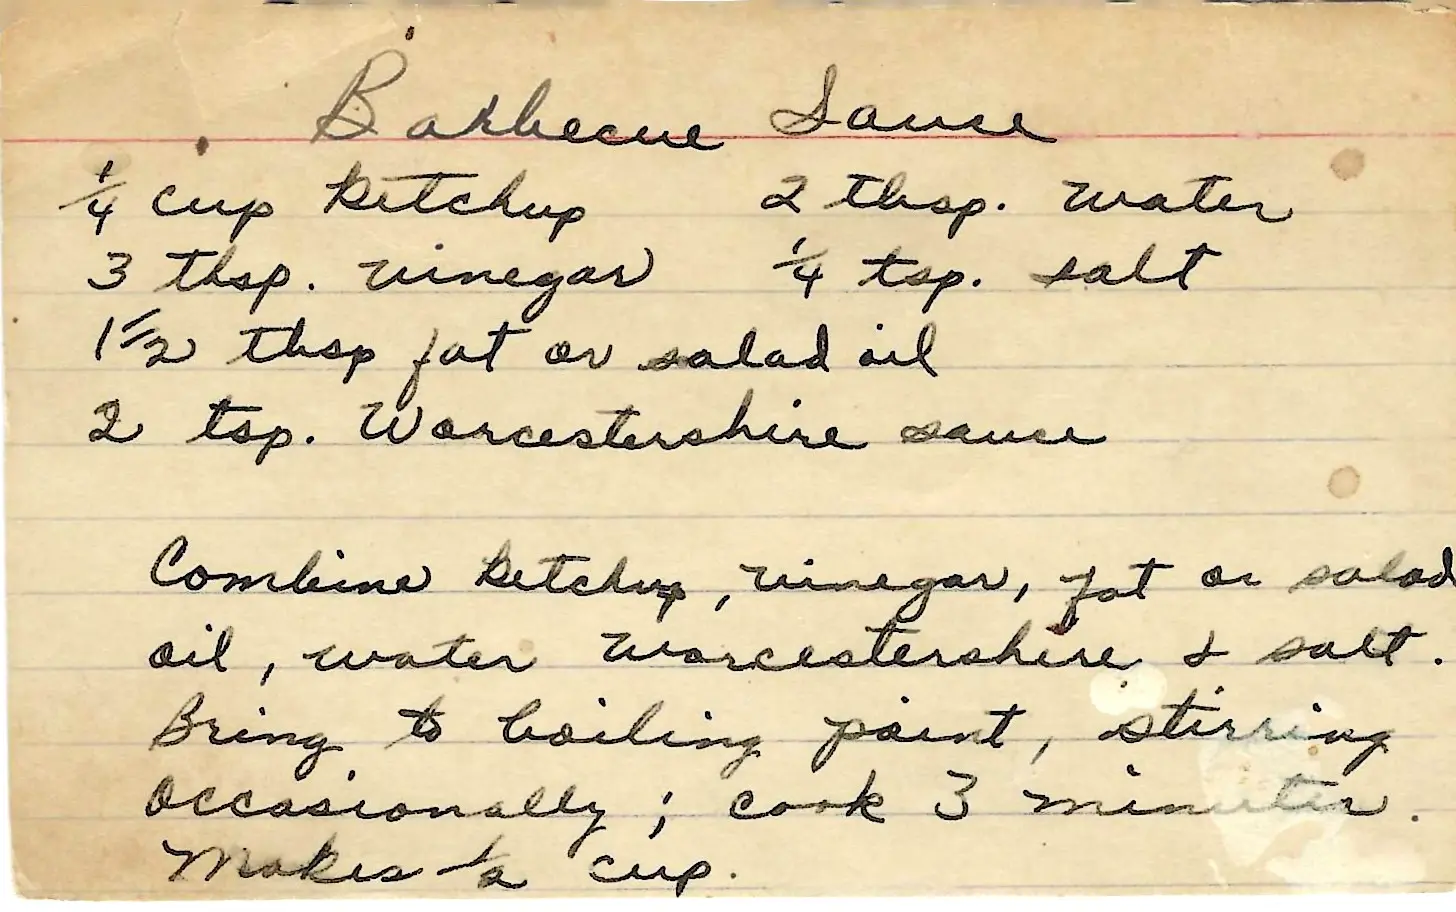 Barbecue Sauce
1/4 cup ketchup 2 tbsp. water
3 tbsp. vinegar 1/4 tsp. salt
1 1/2 tbsp fat or salad oil
2 tsp. Worcestershire sauce
Combine ketchup, vinegar, fat or salad
oil, water Worcestershire & salt.
Bring to boiling point, stirring
occasionally; cook 3 minutes.
Makes 1/2 cup.